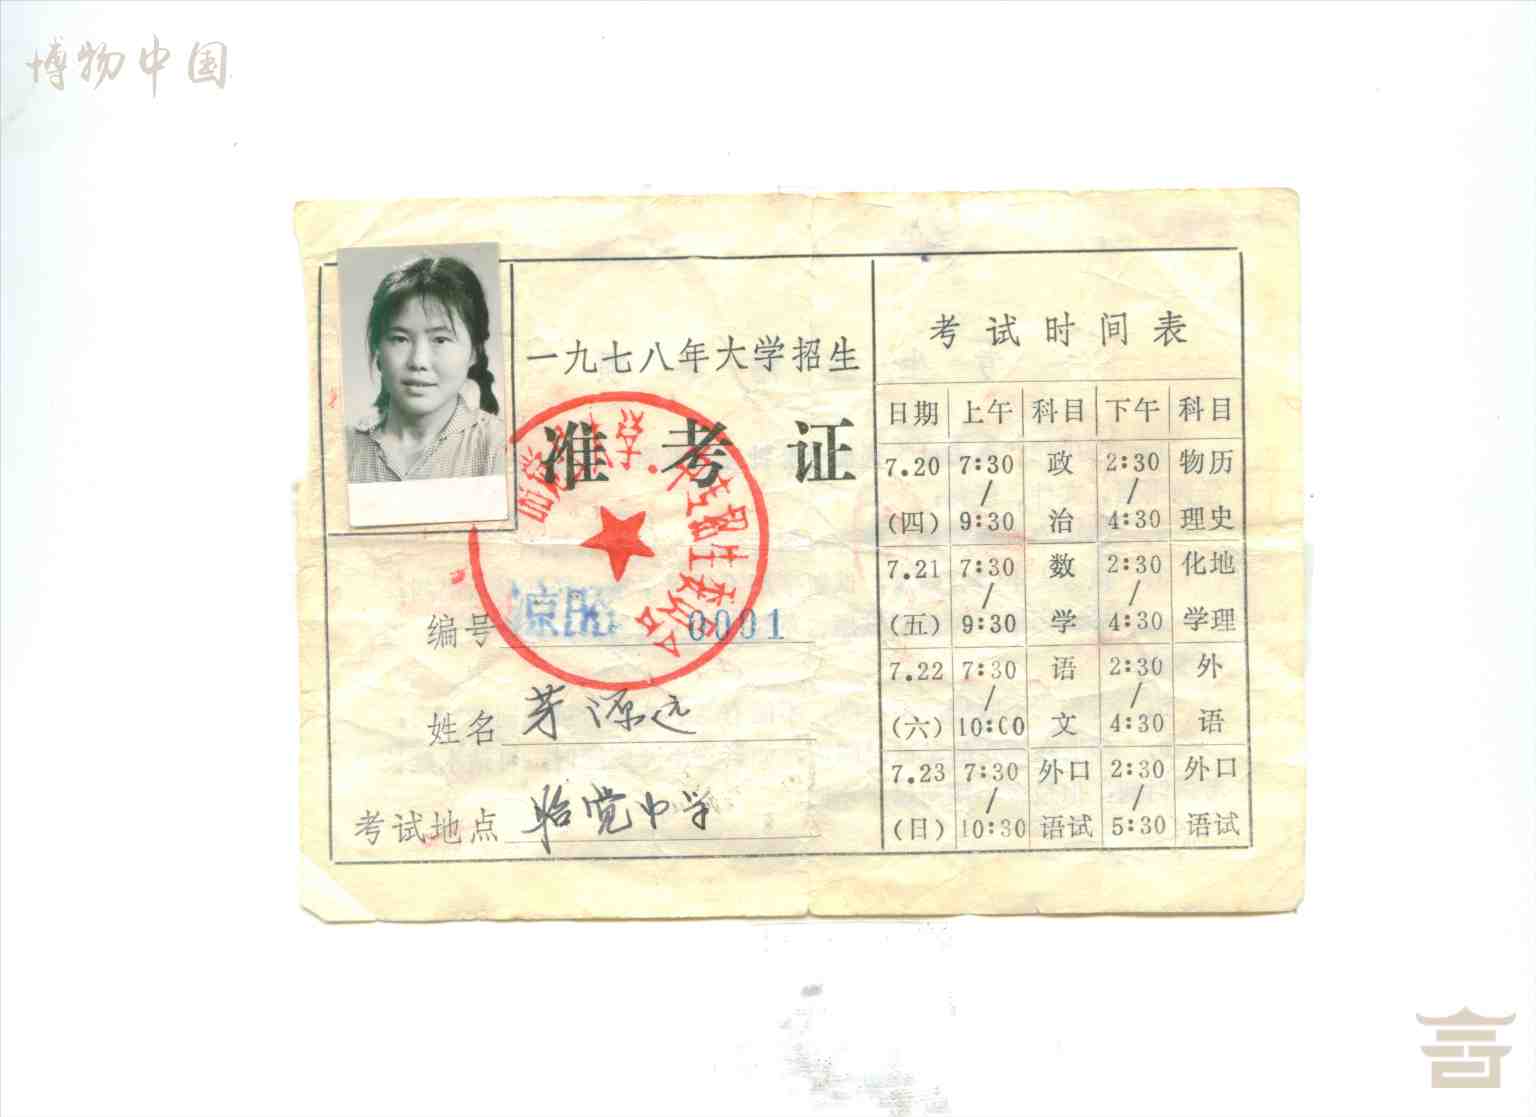 博物中国
一九七八年大学招生
准考证
编号 凉昭 0001
姓名 茅源远
考试地点 昭觉中学
考试时间表
日期 上午 科目 下午 科目
7.20 7:30 政 2:30 物历
(四) / 9:30 治 / 4:30 理史
7.21 7:30 数 2:30 化地
(五) / 9:30 学 / 4:30 学理
7.22 7:30 语 2:30 外
(六) / 10:00 文 / 4:30 语
7.23 7:30 外口 2:30 外口
(日) / 10:30 语试 / 5:30 语试